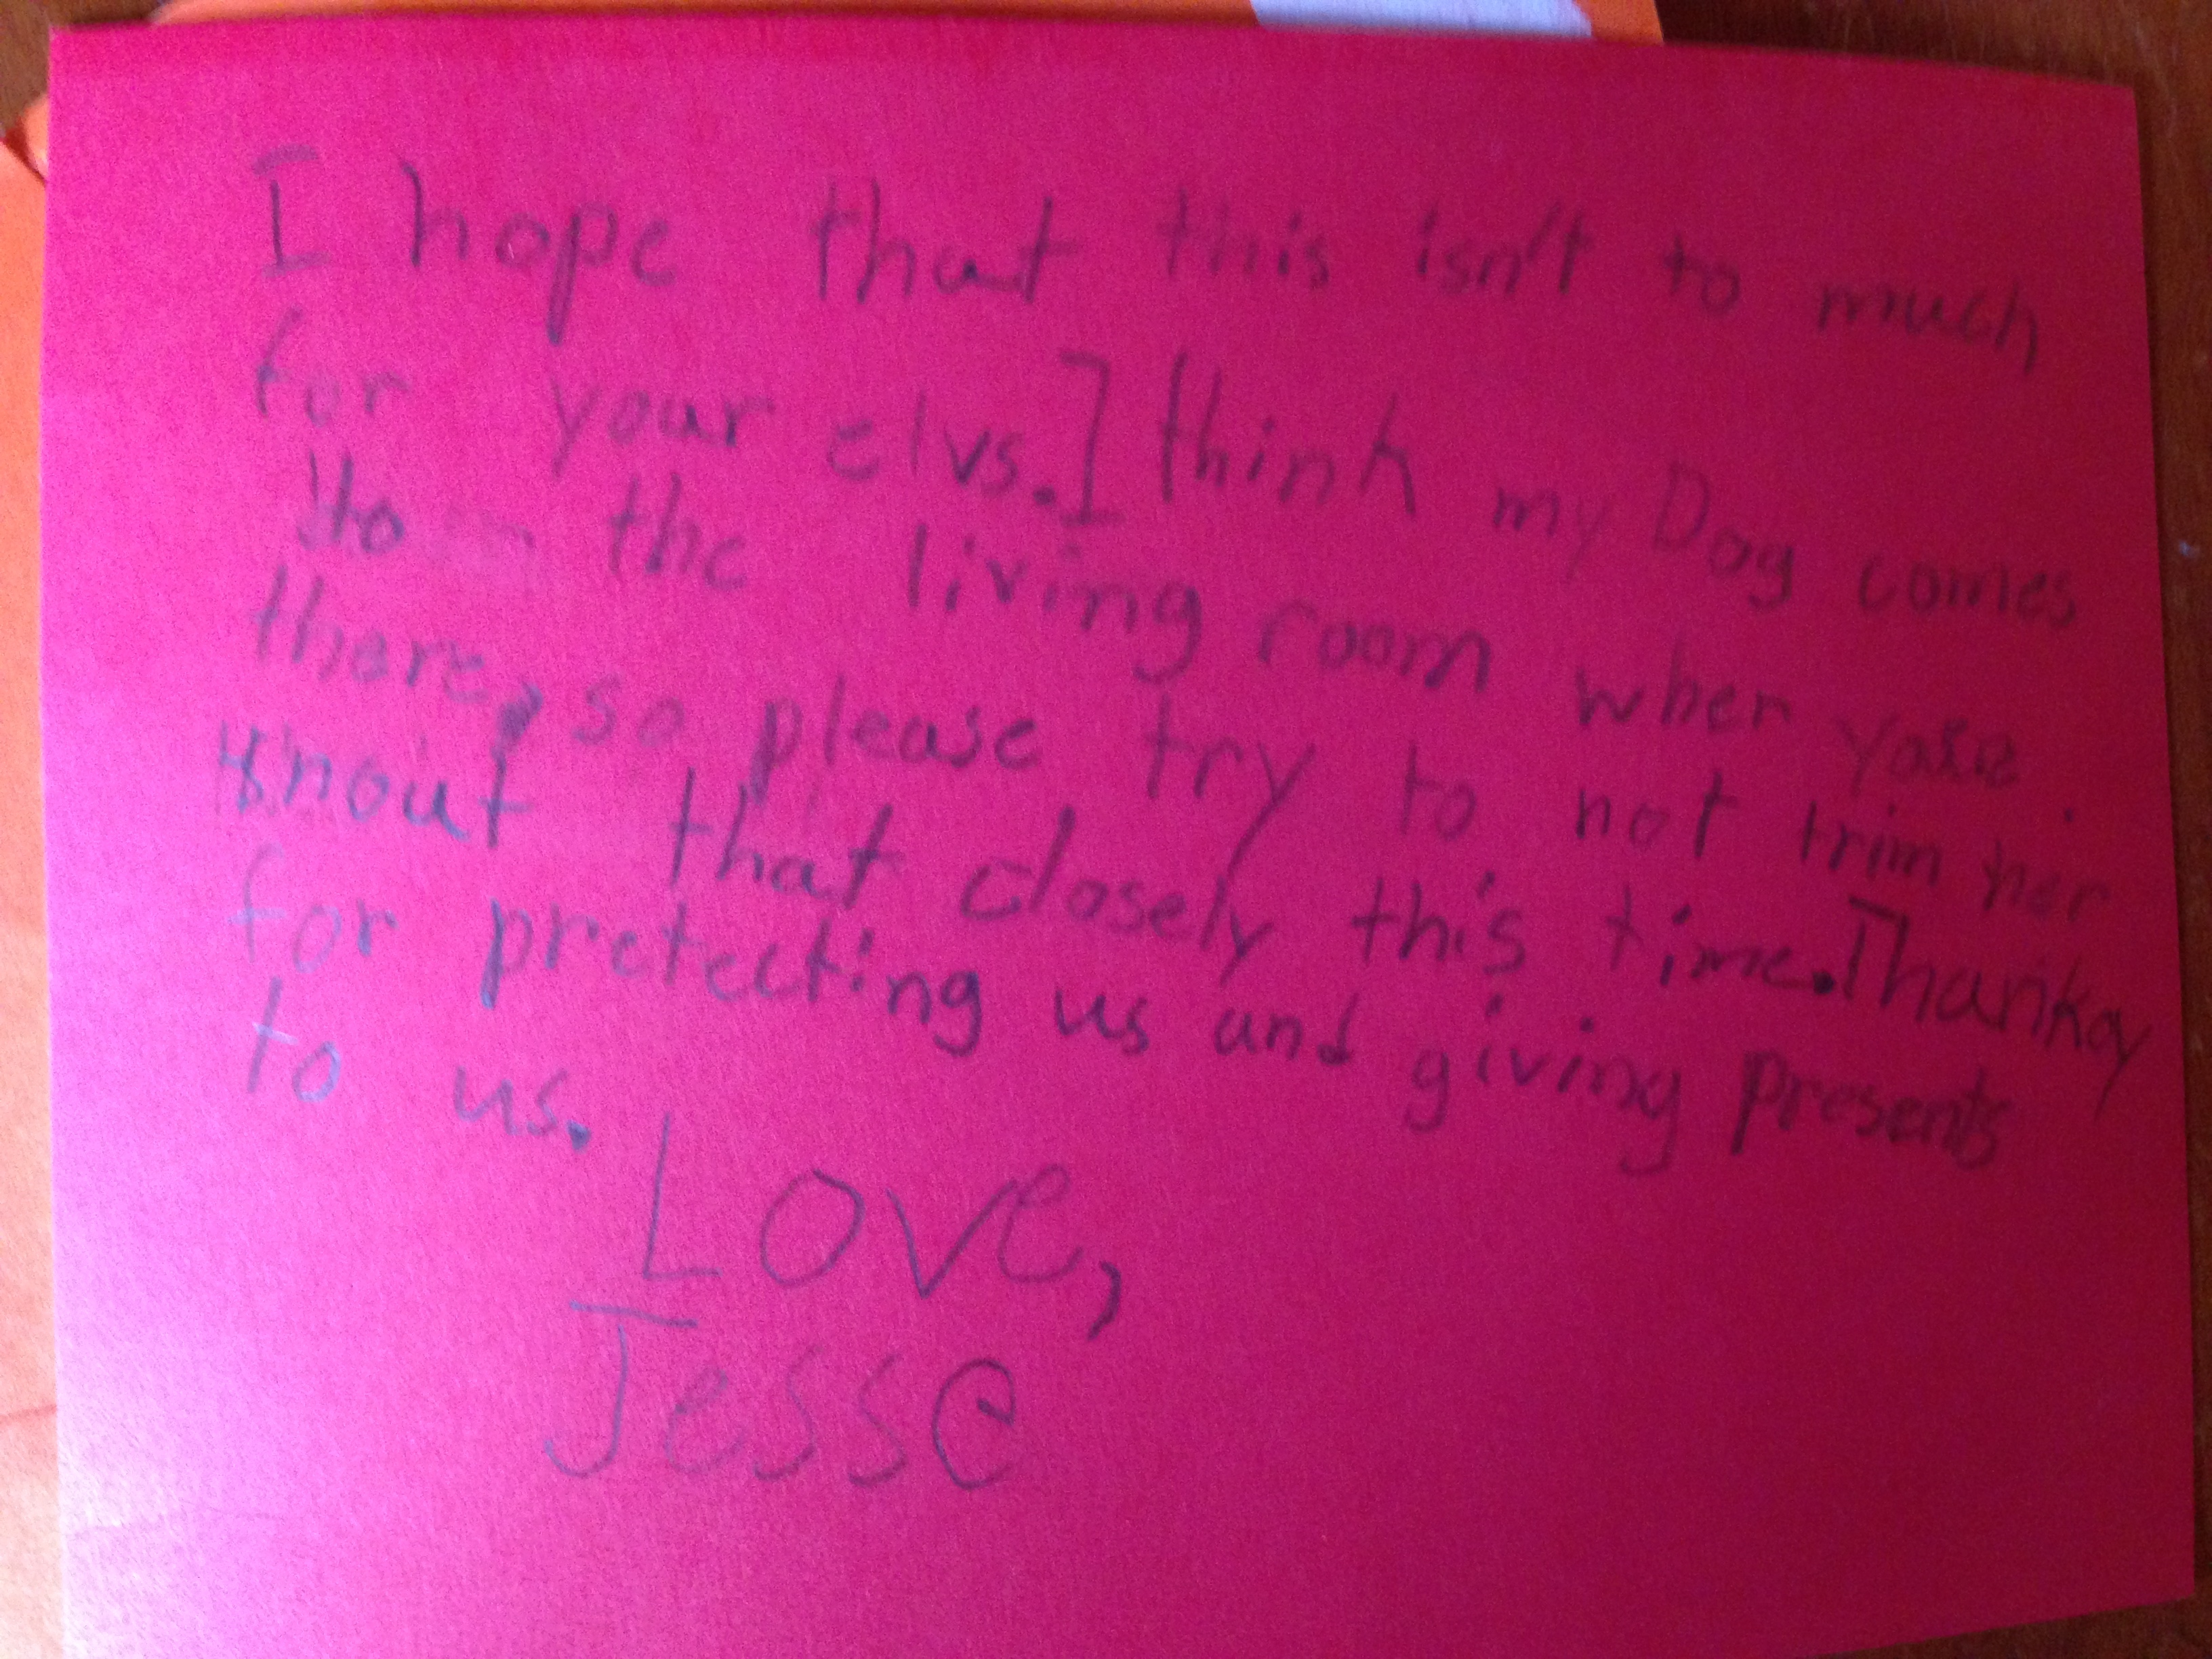 I hope that this isn't to much
for your elvs. I think my Dog comes
to the living room when
there, so please try to not trim her
that closely this time. Thankoy
for pretecting us and giving presents
to us.
Love,
Jesse